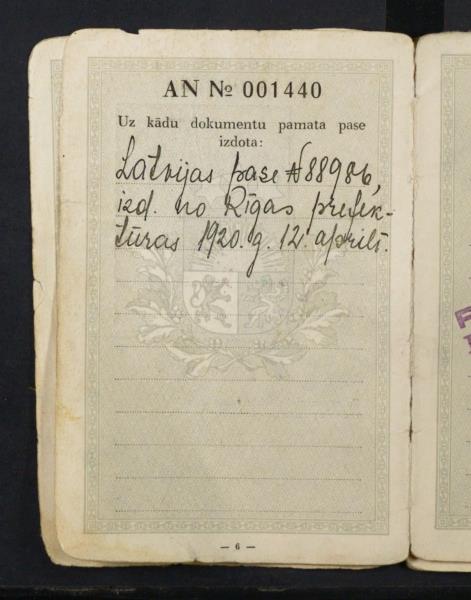 AN № 001440
Uz kādu dokumentu pamata pase
izdota:
Latvijas pase № 88986,
izd. no Rīgas prefek-
tūras 1920. g. 12. aprilī.
— 6 —